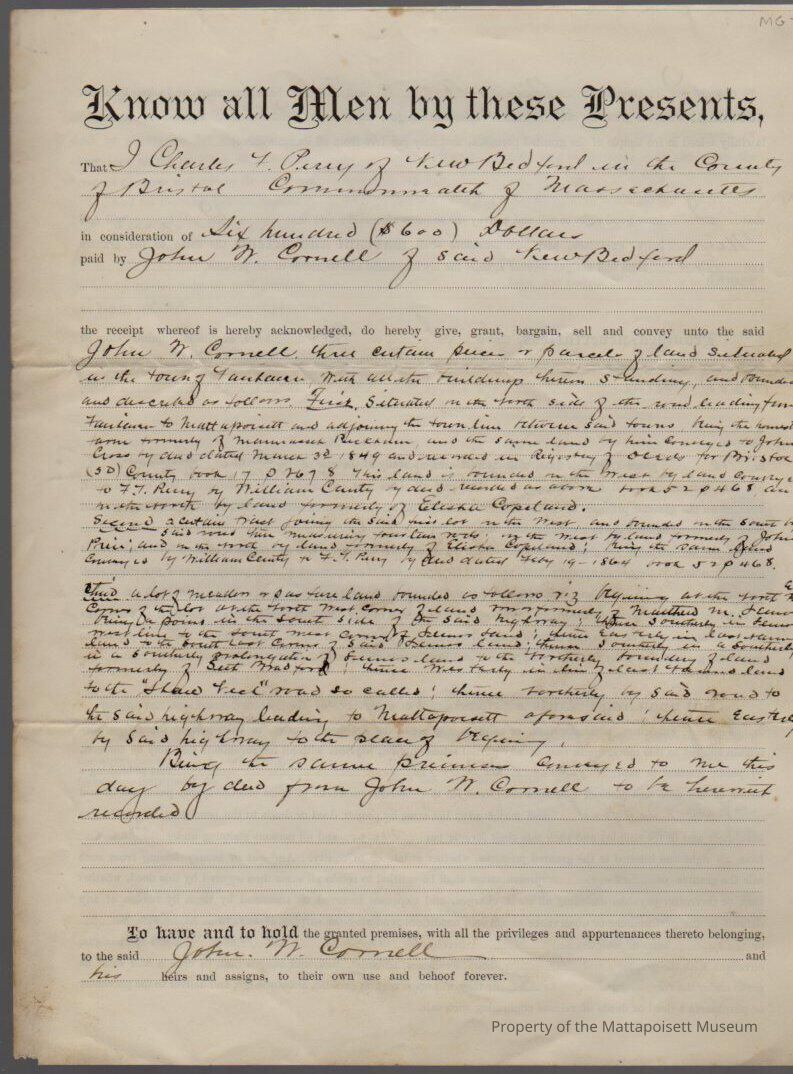 MG-
Know all Men by these Presents,
That I Charles F. Perry of New Bedford in the County
of Bristol Commonwealth of Massachusetts
in consideration of Six hundred ($600) Dollars
paid by John W. Cornell of said New Bedford
the receipt whereof is hereby acknowledged, do hereby give, grant, bargain, sell and convey unto the said
John W. Cornell three certain pieces or parcels of land situated
in the town of Fairhaven with all the buildings thereon standing, and bounded
and described as follows. First. Situated on the North side of the road leading from
Fairhaven to Mattapoisett and adjoining the town line between said towns. Being the homest
farm formerly of and the same land by him conveyed to John
Cross by deed dated March 3d 1849 and recorded in Registry of Deeds for Bristol
(SD) County book 17 P 267 8 This land is bounded on the West by land conveyed
to F.T. Perry by William Canty by deed recorded as above book 52 p 468 an
on the North by land formerly of Elisha Copeland.
Second a certain tract joining the said first lot on the West and bounded on the South b
said road four rods; on the West by land formerly of John
; and on the north by land formerly of Elisha Copeland; being the same
conveyed by William Canty to F.T. Perry by deed dated Feby 19-1864 book 52 p 468.
Third a lot of meadow or pasture land bounded as follows viz Beginning at the North E
Corner of the lot at the North West Corner of land now or formerly of M.
being a point in the South side of the said highway; thence Southerly in
west line to the South West Corner of land; thence Easterly in last named
land to the South East Corner of said land; thence Southerly in a Southerly
in a Southerly prolongation of land to the Northerly boundary of land
formerly of Seth Bradford; thence Westerly in line of last named land
to the "Shaw Neck" road so called; thence Northerly by said road to
the said highway leading to Mattapoisett aforesaid; thence Easterly
by said highway to the place of begining.
Being the same premises conveyed to me this
day by deed from John W. Cornell to be herewith
recorded
To have and to hold the granted premises, with all the privileges and appurtenances thereto belonging,
to the said John. W. Cornell and
his heirs and assigns, to their own use and behoof forever.
Property of the Mattapoisett Museum